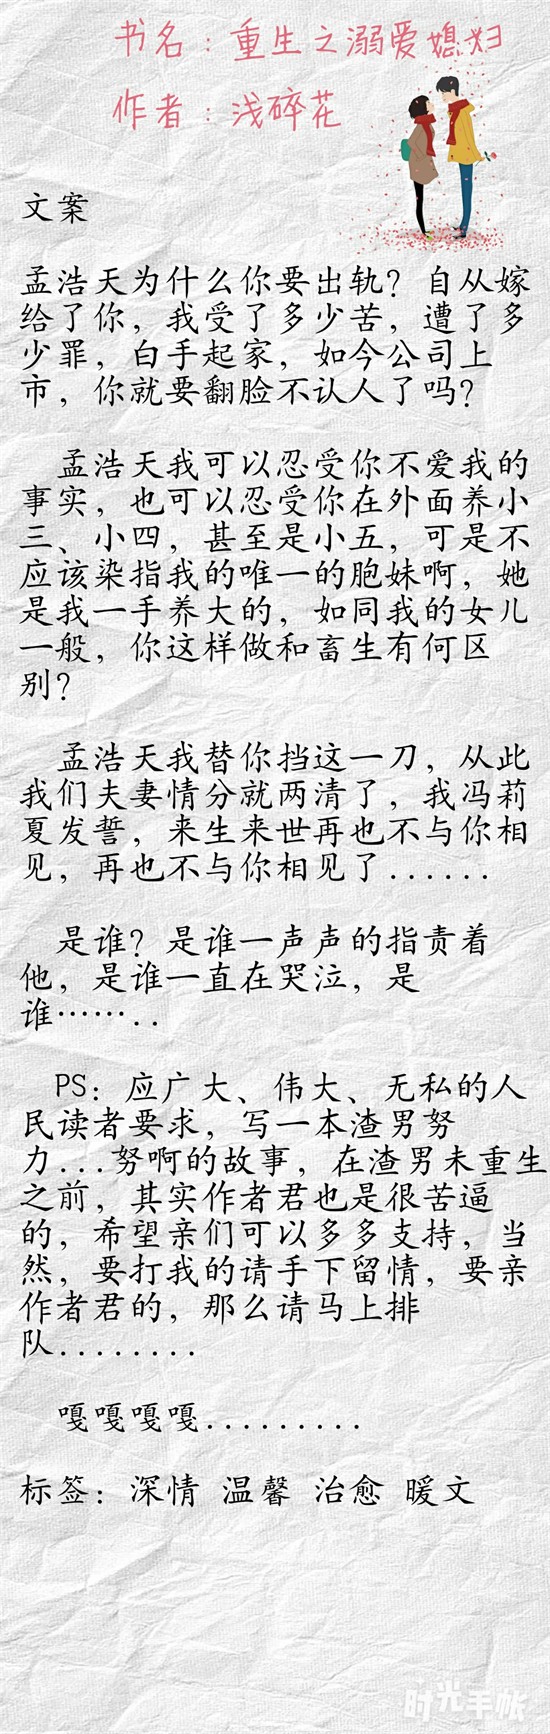 书名：重生之溺爱媳妇
作者：浅碎花
文案
孟浩天为什么你要出轨？自从嫁
给了你，我受了多少苦，遭了多
少罪，白手起家，如今公司上
市，你就要翻脸不认人了吗？
孟浩天我可以忍受你不爱我的
事实，也可以忍受你在外面养小
三、小四，甚至是小五，可是不
应该染指我的唯一的胞妹啊，她
是我一手养大的，如同我的女儿
一般，你这样做和畜生有何区
别？
孟浩天我替你挡这一刀，从此
我们夫妻情分就两清了，我冯莉
夏发誓，来生来世再也不与你相
见，再也不与你相见了......
是谁？是谁一声声的指责着
他，是谁一直在哭泣，是
谁……..
PS：应广大、伟大、无私的人
民读者要求，写一本渣男努
力...努啊的故事，在渣男未重生
之前，其实作者君也是很苦逼
的，希望亲们可以多多支持，当
然，要打我的请手下留情，要亲
作者君的，那么请马上排
队........
嘎嘎嘎嘎.........
标签：深情 温馨 治愈 暖文
时光手帐